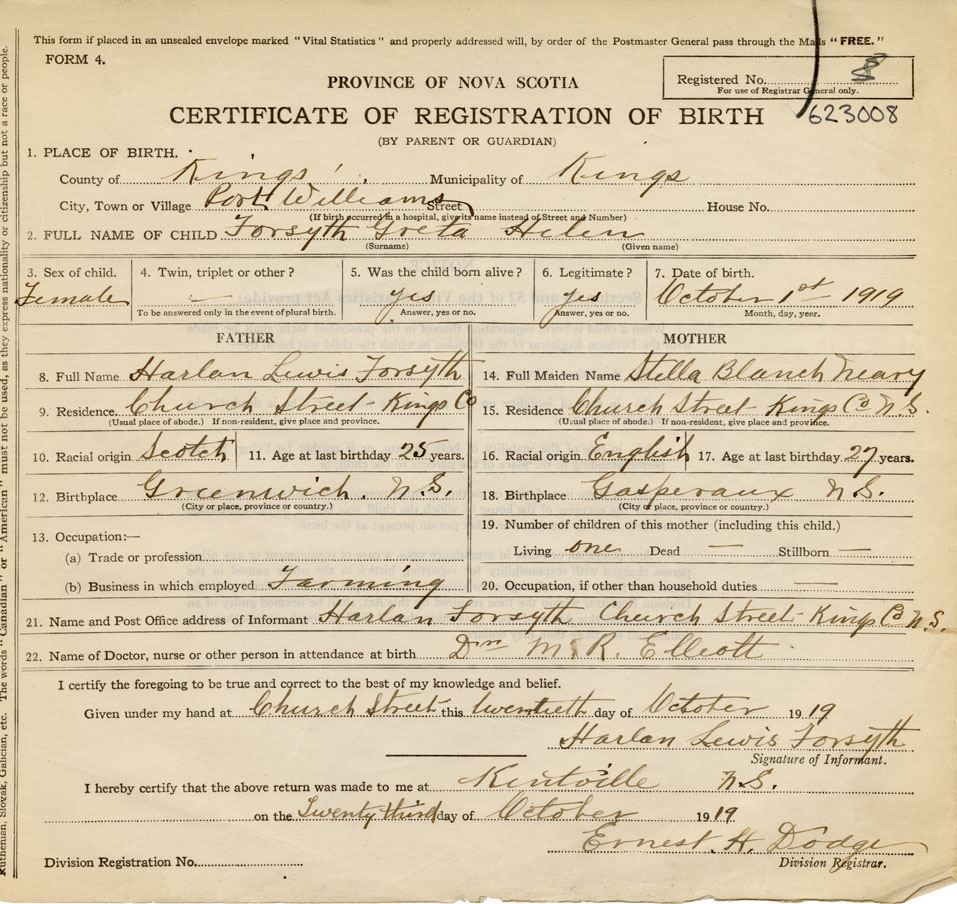 This form if placed in an unsealed envelope marked "Vital Statistics" and properly addressed will, by order of the Postmaster General pass through the Mails "FREE."
FORM 4.
Registered No. 8
For use of Registrar General only.
PROVINCE OF NOVA SCOTIA
CERTIFICATE OF REGISTRATION OF BIRTH 623008
(BY PARENT OR GUARDIAN)
1. PLACE OF BIRTH.
County of Kings Municipality of Kings
City, Town or Village Port Williams Street House No.
(If birth occurred in a hospital, give its name instead of Street and Number)
2. FULL NAME OF CHILD Forsyth Greta Helen
(Surname) (Given name)
3. Sex of child. 4. Twin, triplet or other? 5. Was the child born alive? 6. Legitimate? 7. Date of birth.
Female — yes yes October 1st 1919
To be answered only in the event of plural birth. Answer, yes or no. Answer, yes or no. Month, day, year.
FATHER MOTHER
8. Full Name Harlan Lewis Forsyth 14. Full Maiden Name Stella Blanch Neary
9. Residence. Church Street Kings Co 15. Residence Church Street Kings Co N.S.
(Usual place of abode.) If non-resident, give place and province. (Usual place of abode.) If non-resident, give place and province.
10. Racial origin Scotch 11. Age at last birthday 25 years. 16. Racial origin English 17. Age at last birthday 27 years.
12. Birthplace Greenwich. N.S. 18. Birthplace Gaspereaux N.S.
(City or place, province or country.) (City or place, province or country.)
19. Number of children of this mother (including this child.)
13. Occupation:—
(a) Trade or profession Living one Dead — Stillborn —
(b) Business in which employed Farming 20. Occupation, if other than household duties —
21. Name and Post Office address of Informant Harlan Forsyth Church Street Kings Co N.S.
22. Name of Doctor, nurse or other person in attendance at birth M. R. Elleott
I certify the foregoing to be true and correct to the best of my knowledge and belief.
Given under my hand at Church Street this twentieth day of October 1919
Harlan Lewis Forsyth
Signature of Informant.
I hereby certify that the above return was made to me at Kentville N.S.
on the Twenty third day of October 1919
Ernest. H. Dodge
Division Registrar.
Division Registration No.
Ruthenian, Slovak, Galician, etc. The words "Canadian" or "American" must not be used, as they express nationality or citizenship but not a race or people.